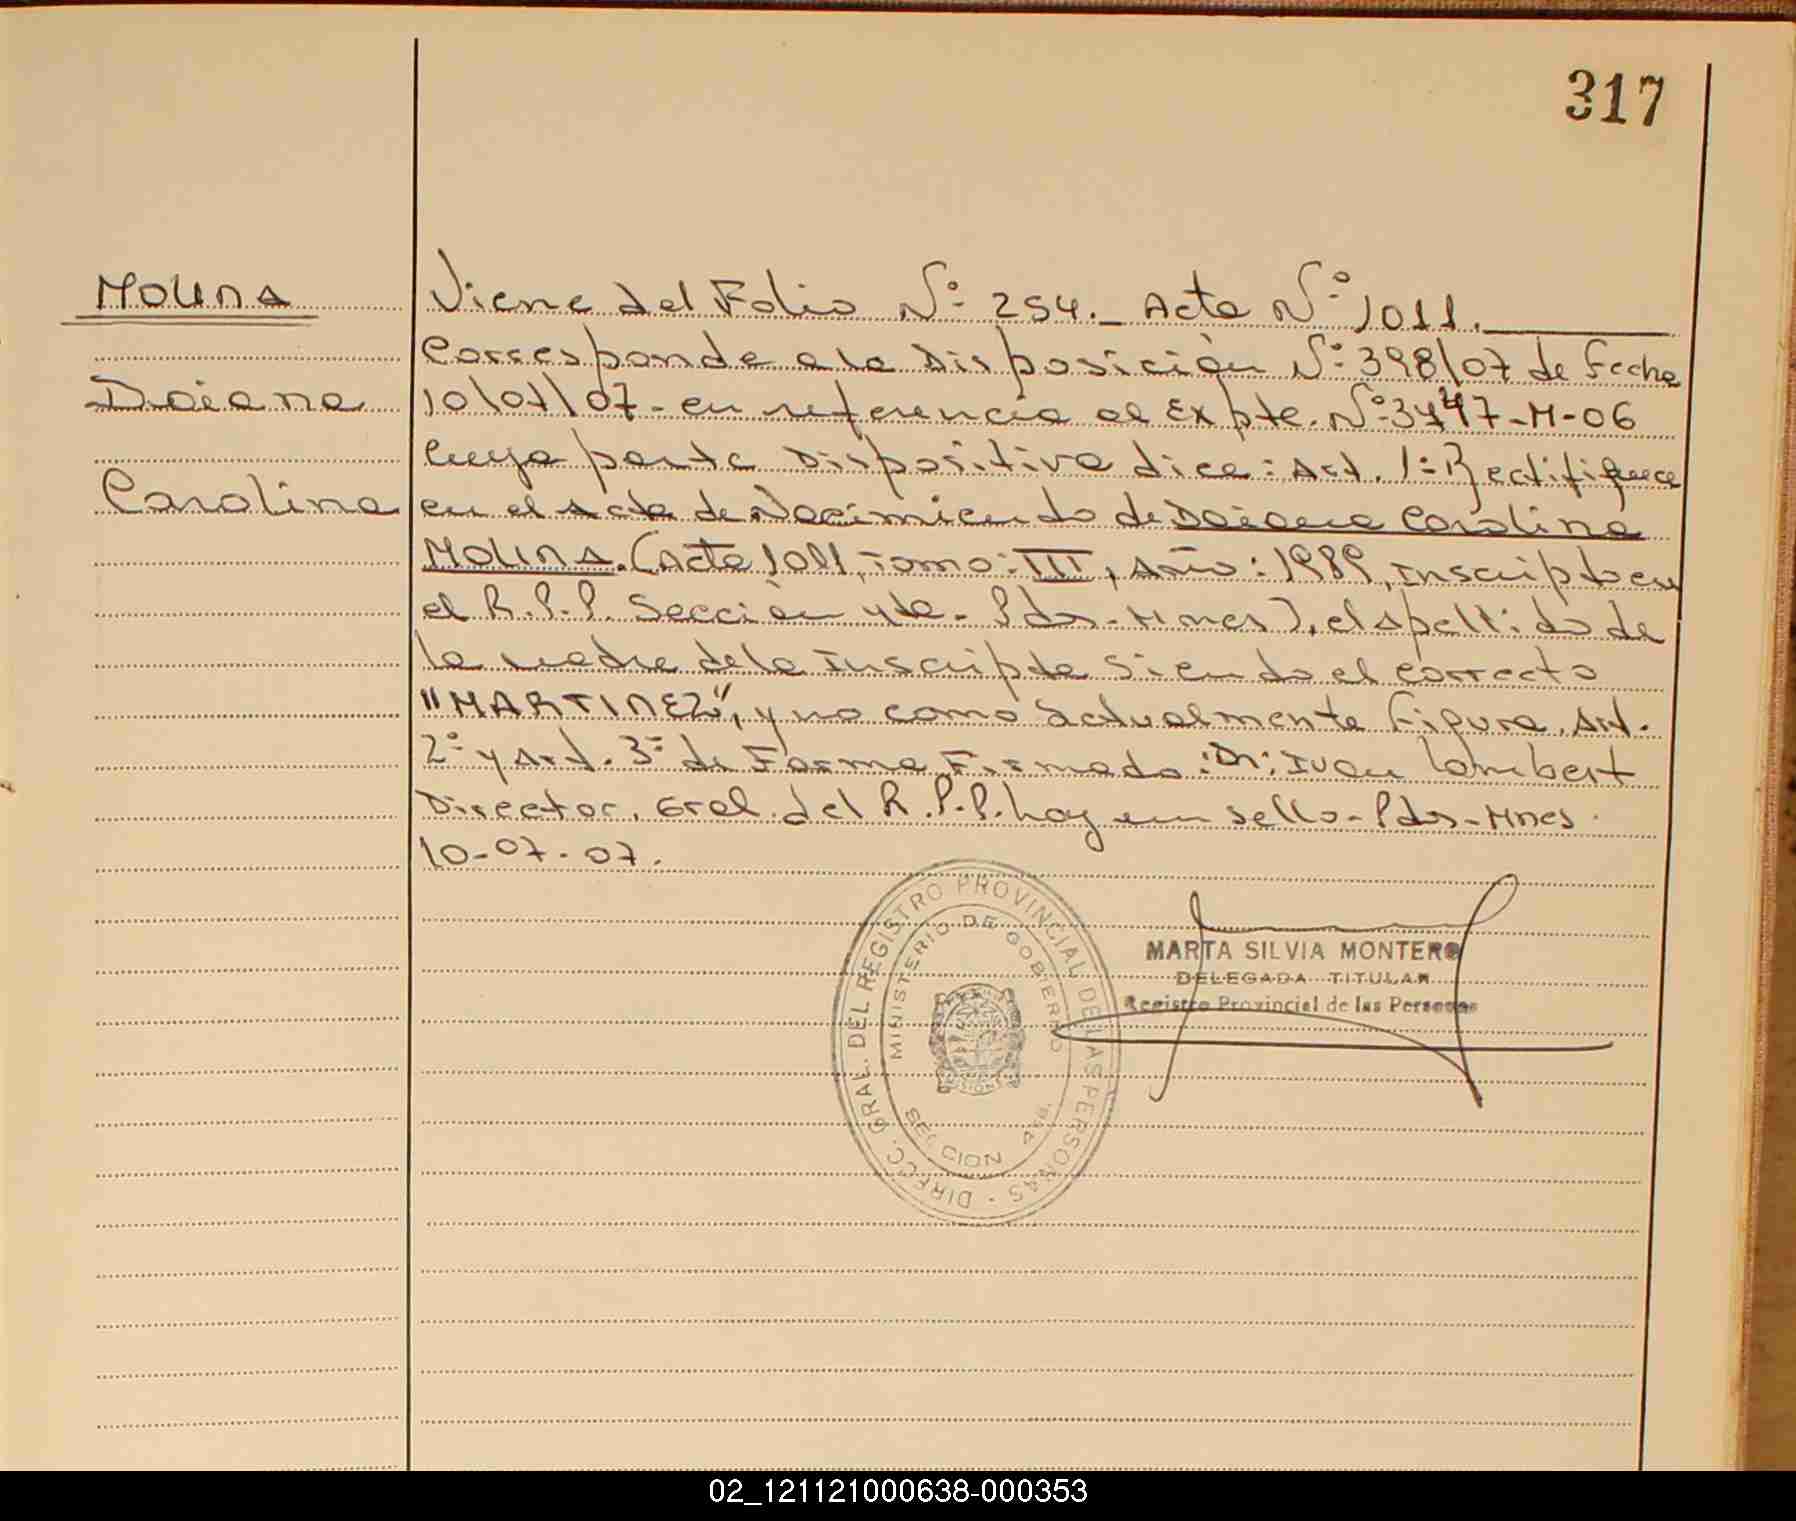 317
MOLINA
Daiana
Carolina
Viene del Folio Nº 254._ Acta Nº 1011.
Corresponde a la Disposición Nº 398/07 de fecha
10/07/07- en referencia al Expte. Nº 3447-M-06
Cuya parte Dispositiva dice: Art. 1º Rectifiquece
en el Acta de Nacimiento de Daiana Carolina
MOLINA. (Acta 1011, Tomo: III, Año: 1989, inscripto en
el R.P.P. Sección 4ta- Pdas-Mnes), el apellido de
la madre de la inscripta siendo el correcto
"MARTINEZ", y no como actualmente figura. Art.
2º y Art. 3º de Forma. Firmado: Dr: Ivan Lombert
Director. Gral. del R.P.P. hay un sello- Pdas-Mnes.
10-07-07.
DIRECC. GRAL. DEL REGISTRO PROVINCIAL DE LAS PERSONAS -
MINISTERIO DE GOBIERNO
SECCION 4ta.
MARTA SILVIA MONTERO
DELEGADA TITULAR
Registro Provincial de las Personas
02_121121000638-000353